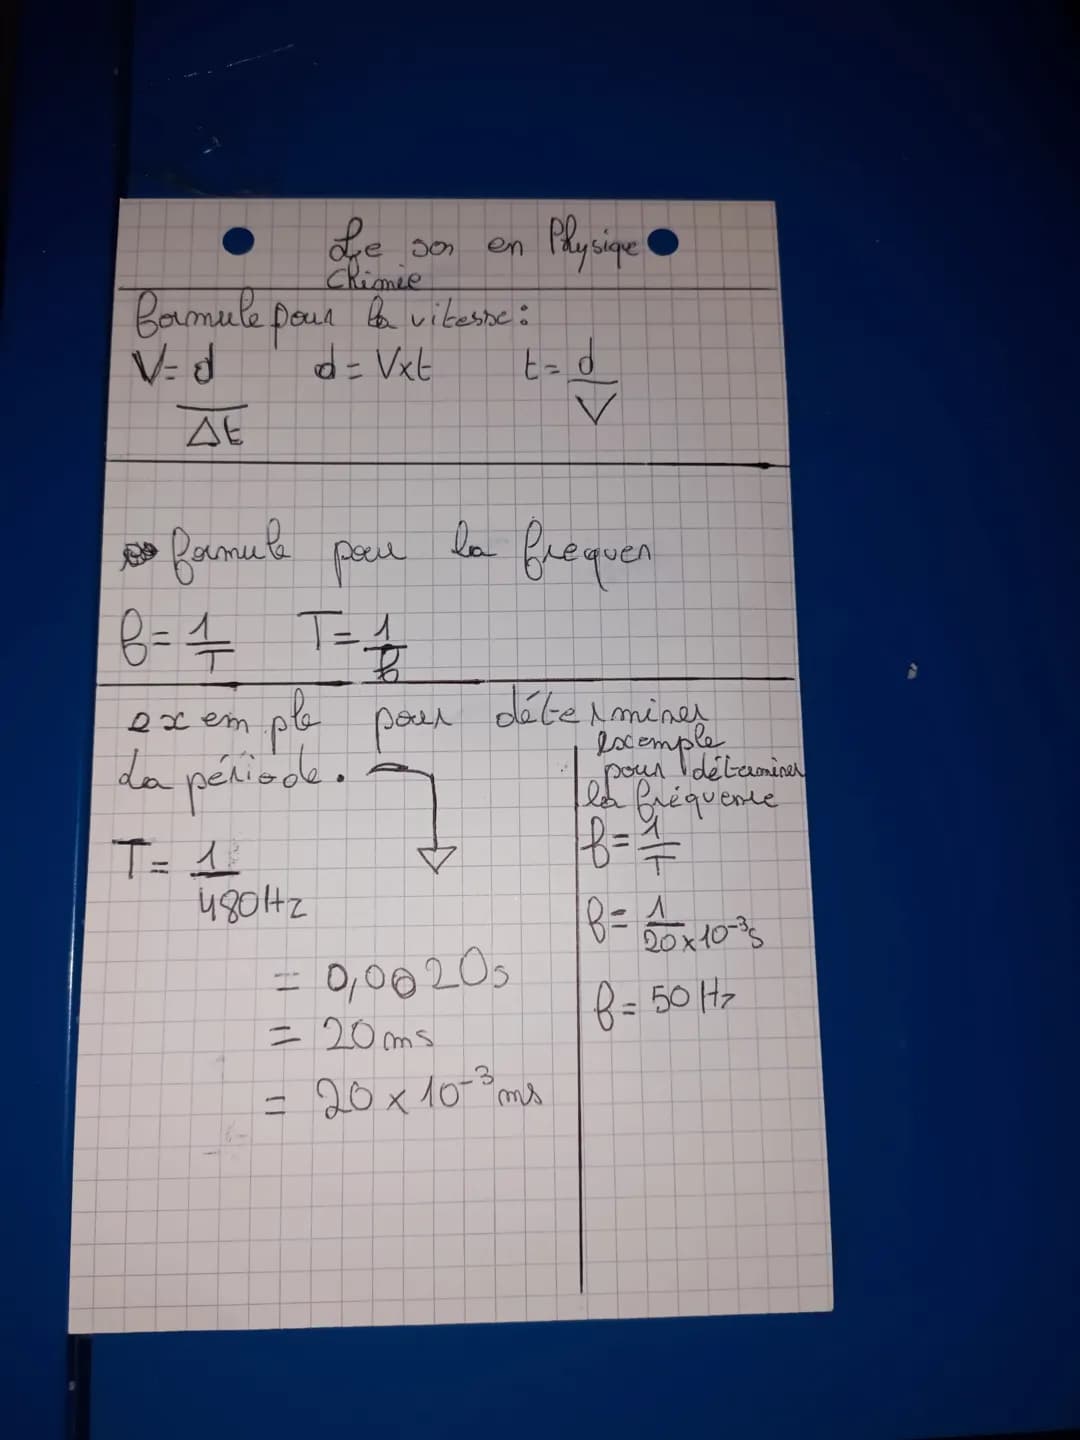 Le son en Physique
Chimie
formule pour la vitesse :
V = d/Δt d = V×t t = d/V
formule pour la frequen
f = 1/T T = 1/f
exemple pour déterminer
la période.
T = 1/480Hz
= 0,0020s
= 20ms
= 20 × 10⁻³ ms
exemple
pour déterminer
la fréquence
f = 1/T
f = 1/20×10⁻³s
f = 50 Hz